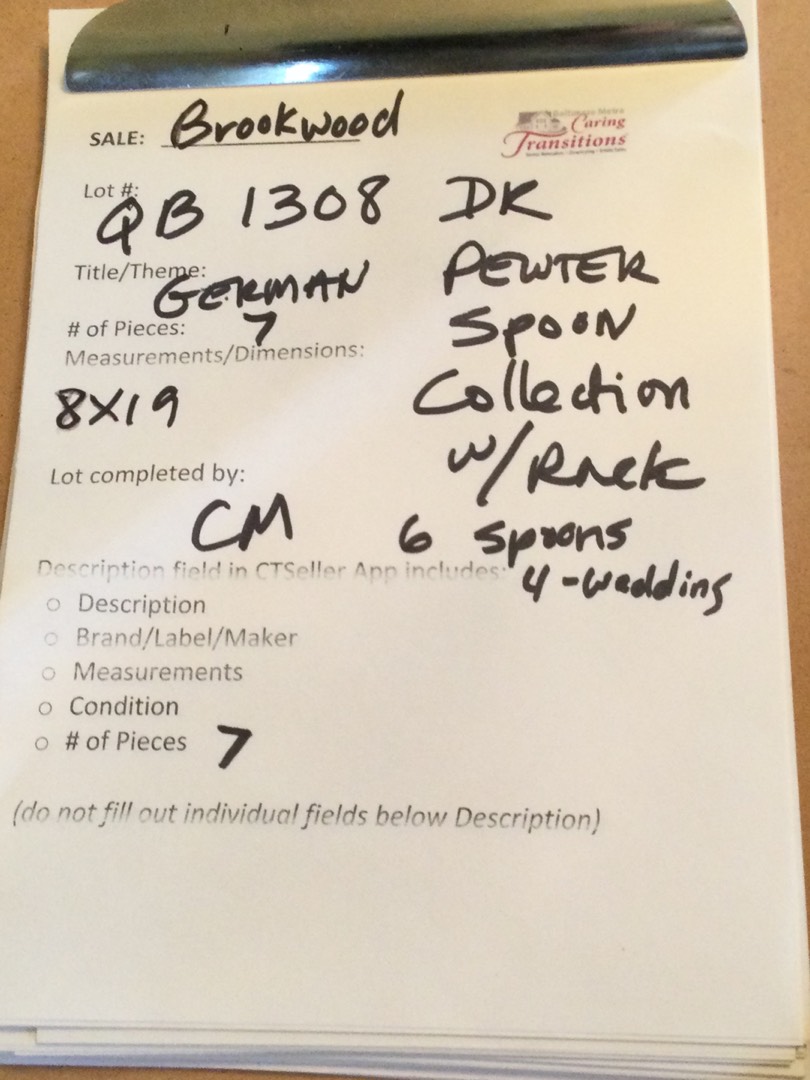 SALE: Brookwood
Caring
Transitions
Lot #:
QB 1308 DK
Title/Theme:
GERMAN PEWTER
# of Pieces: 7 SPOON
Measurements/Dimensions:
8X19 Collection
w/Rack
Lot completed by:
CM 6 spoons
Description field in CTSeller App includes: 4-wedding
○ Description
○ Brand/Label/Maker
○ Measurements
○ Condition
○ # of Pieces 7
(do not fill out individual fields below Description)